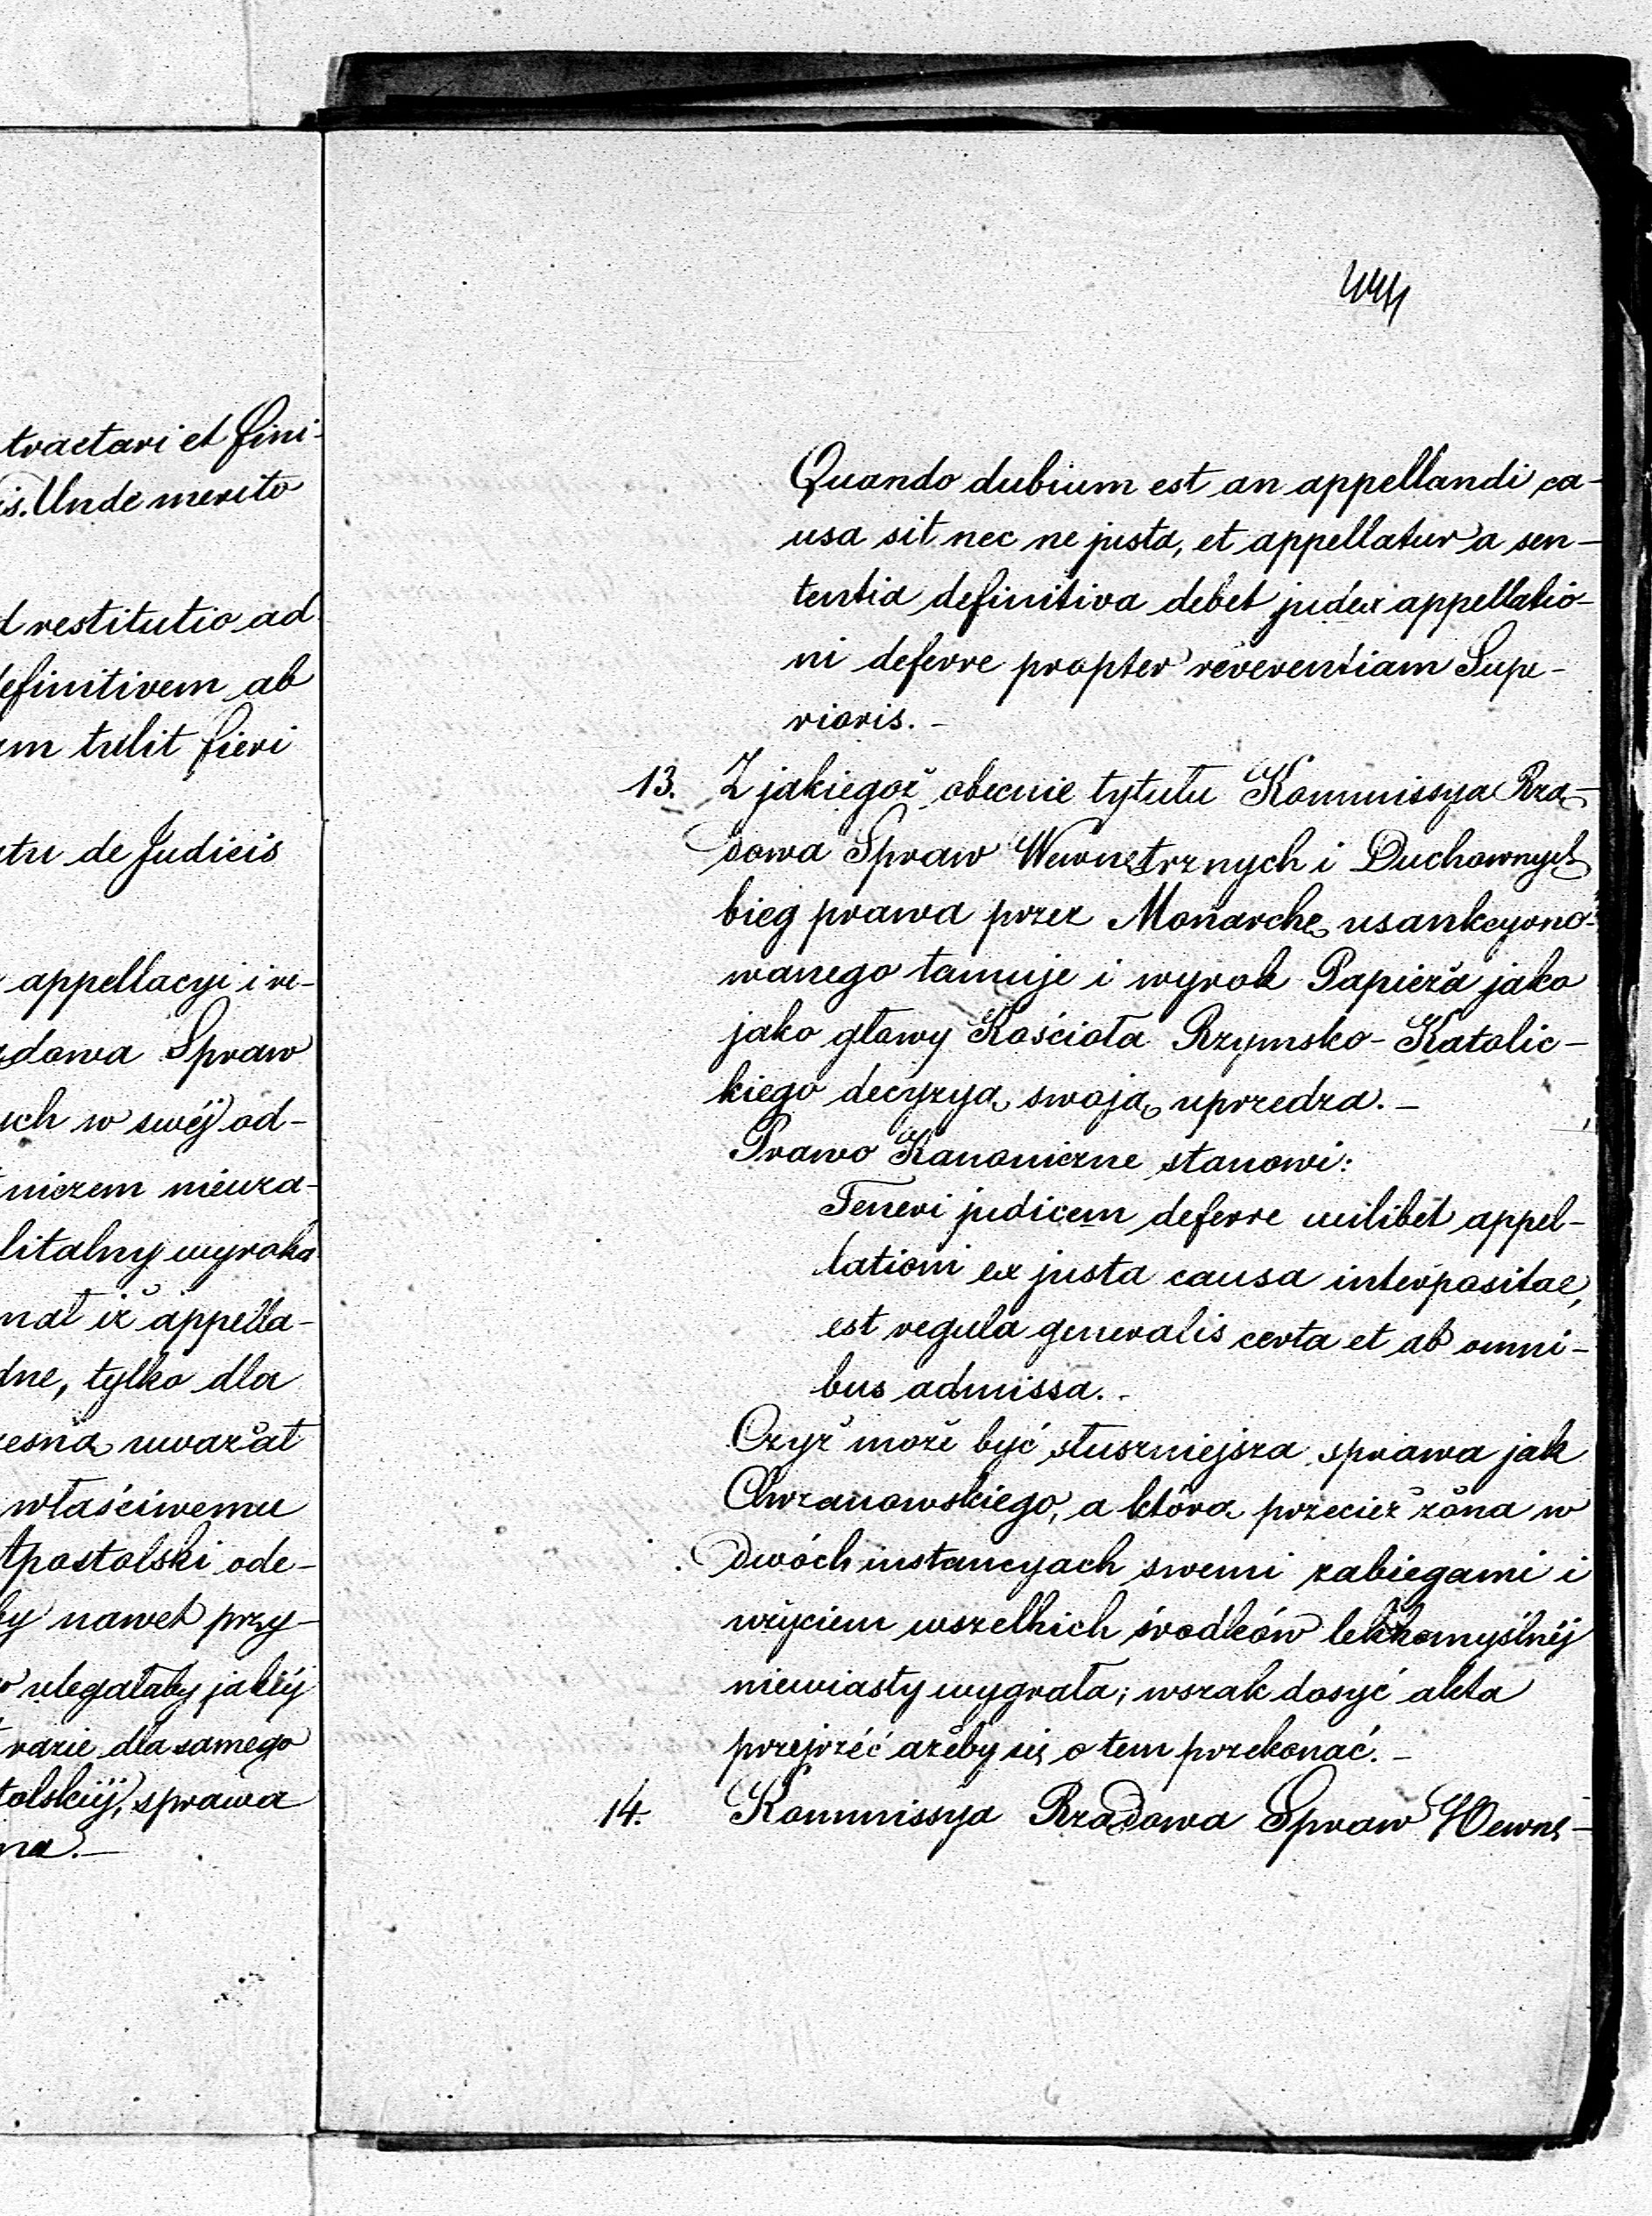 tractari et fini-
is. Unde merito
restitutio ad
definitivem ab
um tulit fieri
atu de Judicis
appellacyi i re-
ądowa Spraw
uch w swéj od-
niczem nieuza-
litalny wyroka
nał iż appella-
dne, tylko dla
uważał
właściwemu
Apostolski ode-
by nawet przy-
ulegałaby jakiéj
razie dla samego
tolskiéj, sprawa
na.-
444
Quando dubium est an appellandi ca-
usa sit nec ne justa, et appellatur a sen-
tentia definitiva debet judex appellatio-
ni deferre propter reverentiam Supe-
rioris.-
13. Z jakiegoż obecnie tytułu Kommissya Rzą-
dowa Spraw Wewnętrznych i Duchownych
bieg prawa przez Monarchę usankcyono-
wanego tamuje i wyrok Papieża jako
jako głowy Kościoła Rzymsko-Katolic-
kiego decyzyą swoją uprzedza.-
Prawo Kanoniczne stanowi:
Teneri judicem deferre cuilibet appel-
lationi ex justa causa interpositae,
est regula generalis certa et ab omni-
bus admissa.-
Czyż może być słuszniejsza sprawa jak
Chrzanowskiego, a którą przecież żona w
dwóch instancyach swemi zabiegami i
użyciem wszelkich środków lekkomyślnéj
niewiasty wygrała; wszak dosyć akta
przejrzéć ażeby się o tem przekonać.-
14. Kommissya Rządowa Spraw Wewnę-